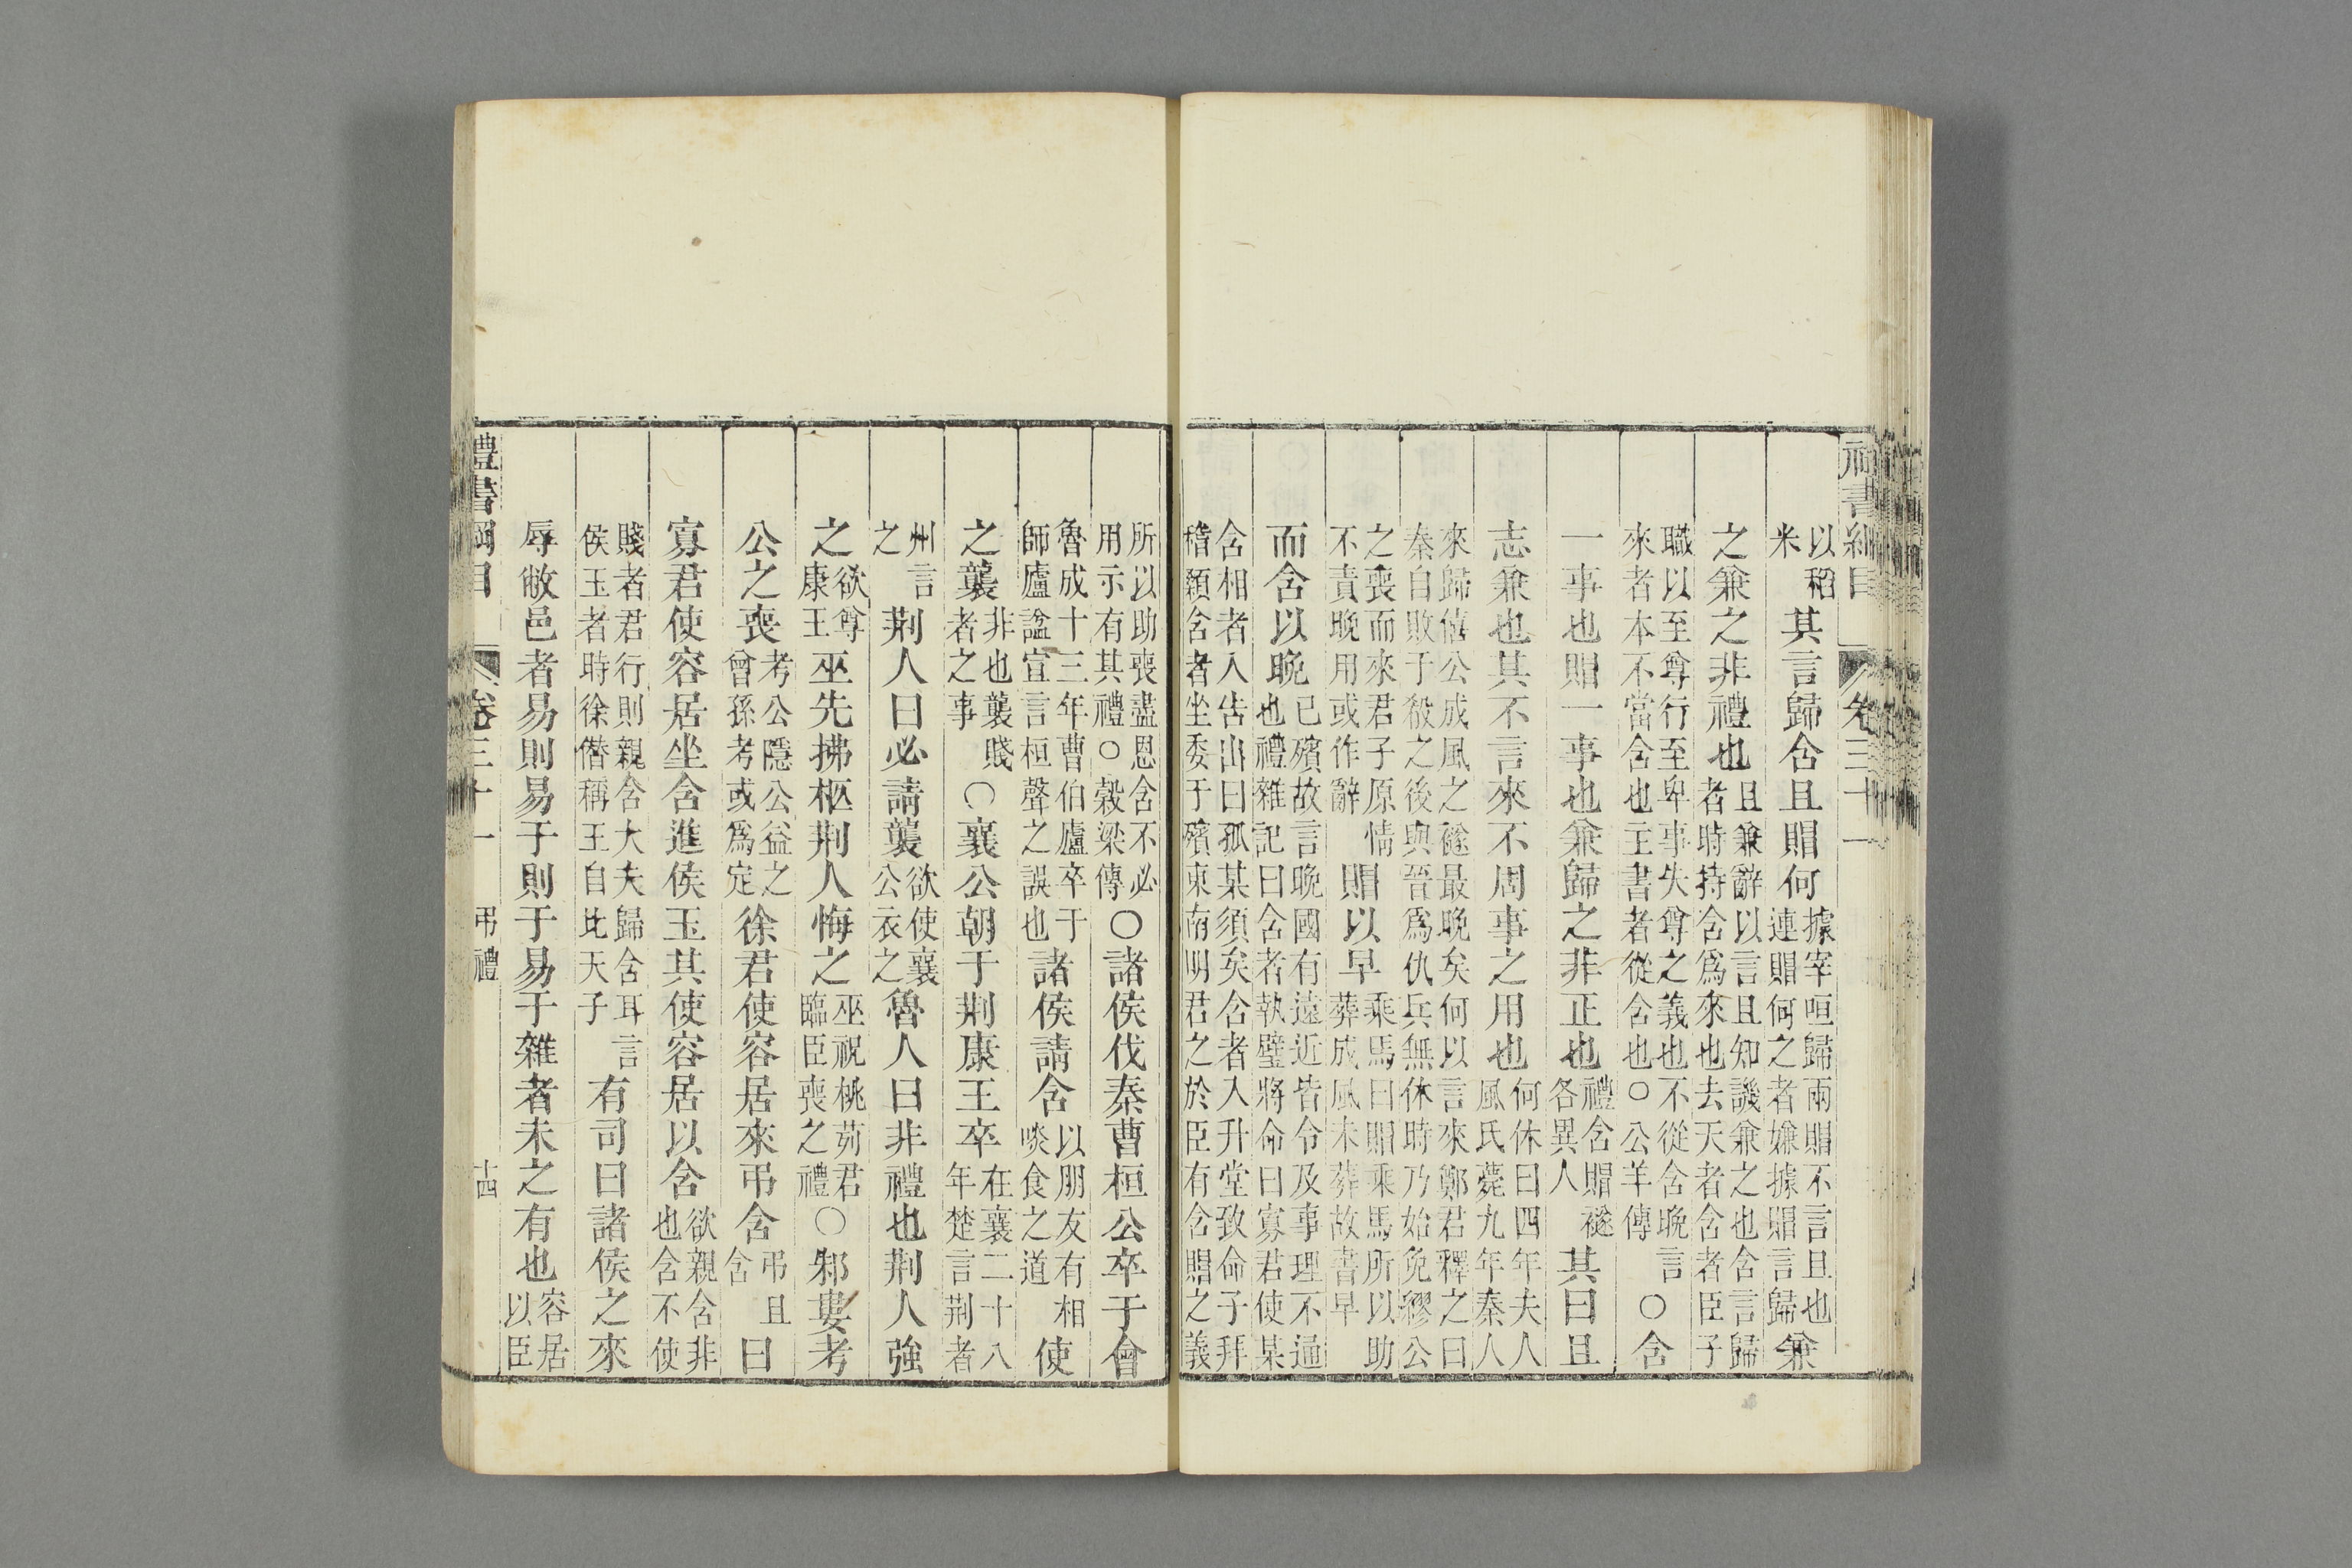 禮書綱目 卷三十一
以稻米其言歸含且賵何據宰咺歸兩賵不言且也連賵何之者嫌據賵言歸兼
之兼之非禮也且兼辭以言且知譏兼之也含言歸者時持含爲來也去天者含者臣子
職以至尊行至卑事失尊之義也不從含晚言來者本不當含也王書者從含也○公羊傳○含
一事也賵一事也兼歸之非正也禮含賵襚各異人其曰且
志兼也其不言來不周事之用也何休曰四年夫人風氏薨九年秦人
來歸僖公成風之襚最晚矣何以言來鄭君釋之曰秦自敗于殽之後與晉爲仇兵無休時乃始免繆公
之喪而來君子原情不責晚用或作辭賵以早乘馬曰賵乘馬所以助葬成風未葬故書早
而含以晚已殯故言晚國有遠近皆令及事理不通也禮雜記曰含者執璧將命曰寡君使某
含相者入告出曰孤某須矣含者入升堂致命子拜稽顙含者坐委于殯東南明君之於臣有含賵之義
所以助喪盡恩含不必用示有其禮○穀梁傳○諸侯伐秦曹桓公卒于會
魯成十三年曹伯廬卒于師廬諡宣言桓聲之誤也諸侯請含以朋友有相啖食之道使
之襲非也襲賤者之事○襄公朝于荆康王卒在襄二十八年楚言荆者
州言之荆人曰必請襲欲使襄公衣之魯人曰非禮也荆人強
之欲尊康王巫先拂柩荆人悔之巫祝桃茢君臨臣喪之禮○邾婁考
公之喪考公隱公益之曾孫考或爲定徐君使容居來弔含弔且含曰
寡君使容居坐含進侯玉其使容居以含欲親含非也含不使
賤者君行則親含大夫歸含耳言侯玉者時徐僭稱王自比天子有司曰諸侯之來
辱敝邑者易則易于則于易于雜者未之有也容居以臣
禮書綱目 卷三十一 弔禮 十四